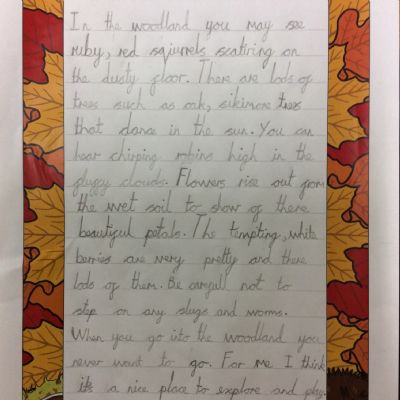 In the woodland you may see
ruby, red sqiurrels scatiring on
the dusty floor. There are lods of
trees such as oak, sikimore trees
that dance in the sun. You can
hear chirping robins high in the
fluffy clouds. Flowers rise out from
the wet soil to show of there
beautiful petals. The tempting, white
berries are very pretty and there
lods of them. Be carefull not to
step on any slugs and worms.
When you go into the woodland you
never want to go. For me I think
its a nice place to explore and play.